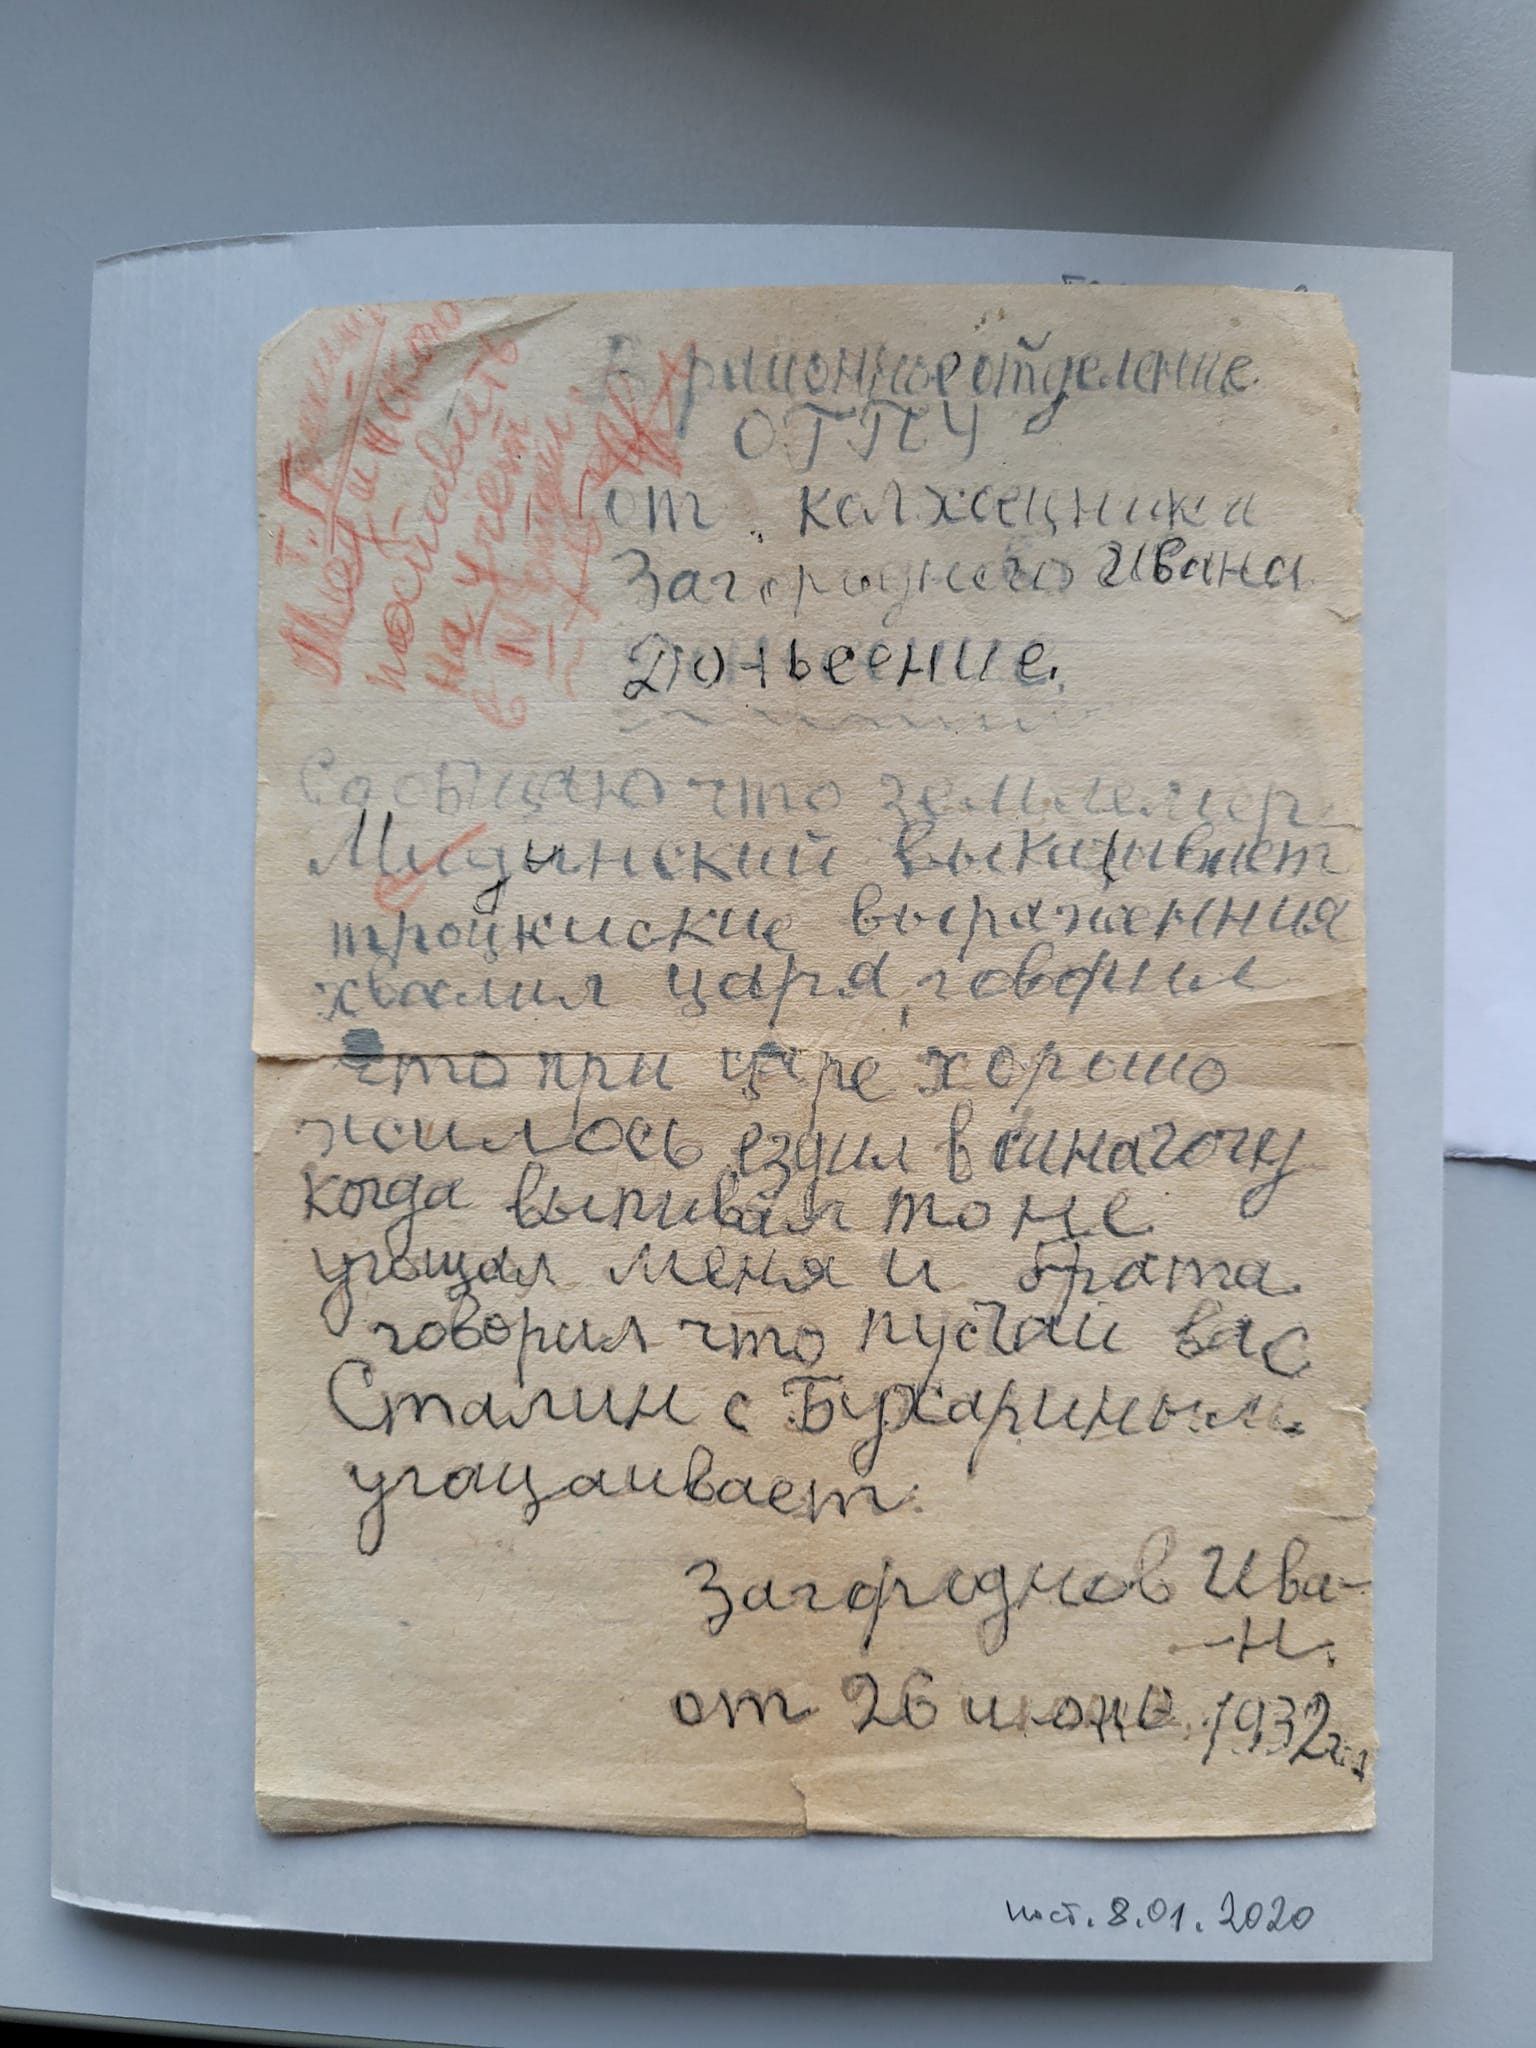 В раионное отделение
ОГПУ
от колхозника
Загороднего Ивана
Доньесение.
Сообщаю что землемер
Мидынский выкаиывает
троцкиские выражения
хвалил царя, говорил
что при царе хорошо
жилось ездил в синагочу
когда выпивал то не
угощал меня и брата
говорил что пустай вас
Сталин с Бухариным
угощаивает.
Загороднов Ива-
-н.
от 26 июня 1932 г.
поставить
на учет
в IV
пост. 8.01.2020